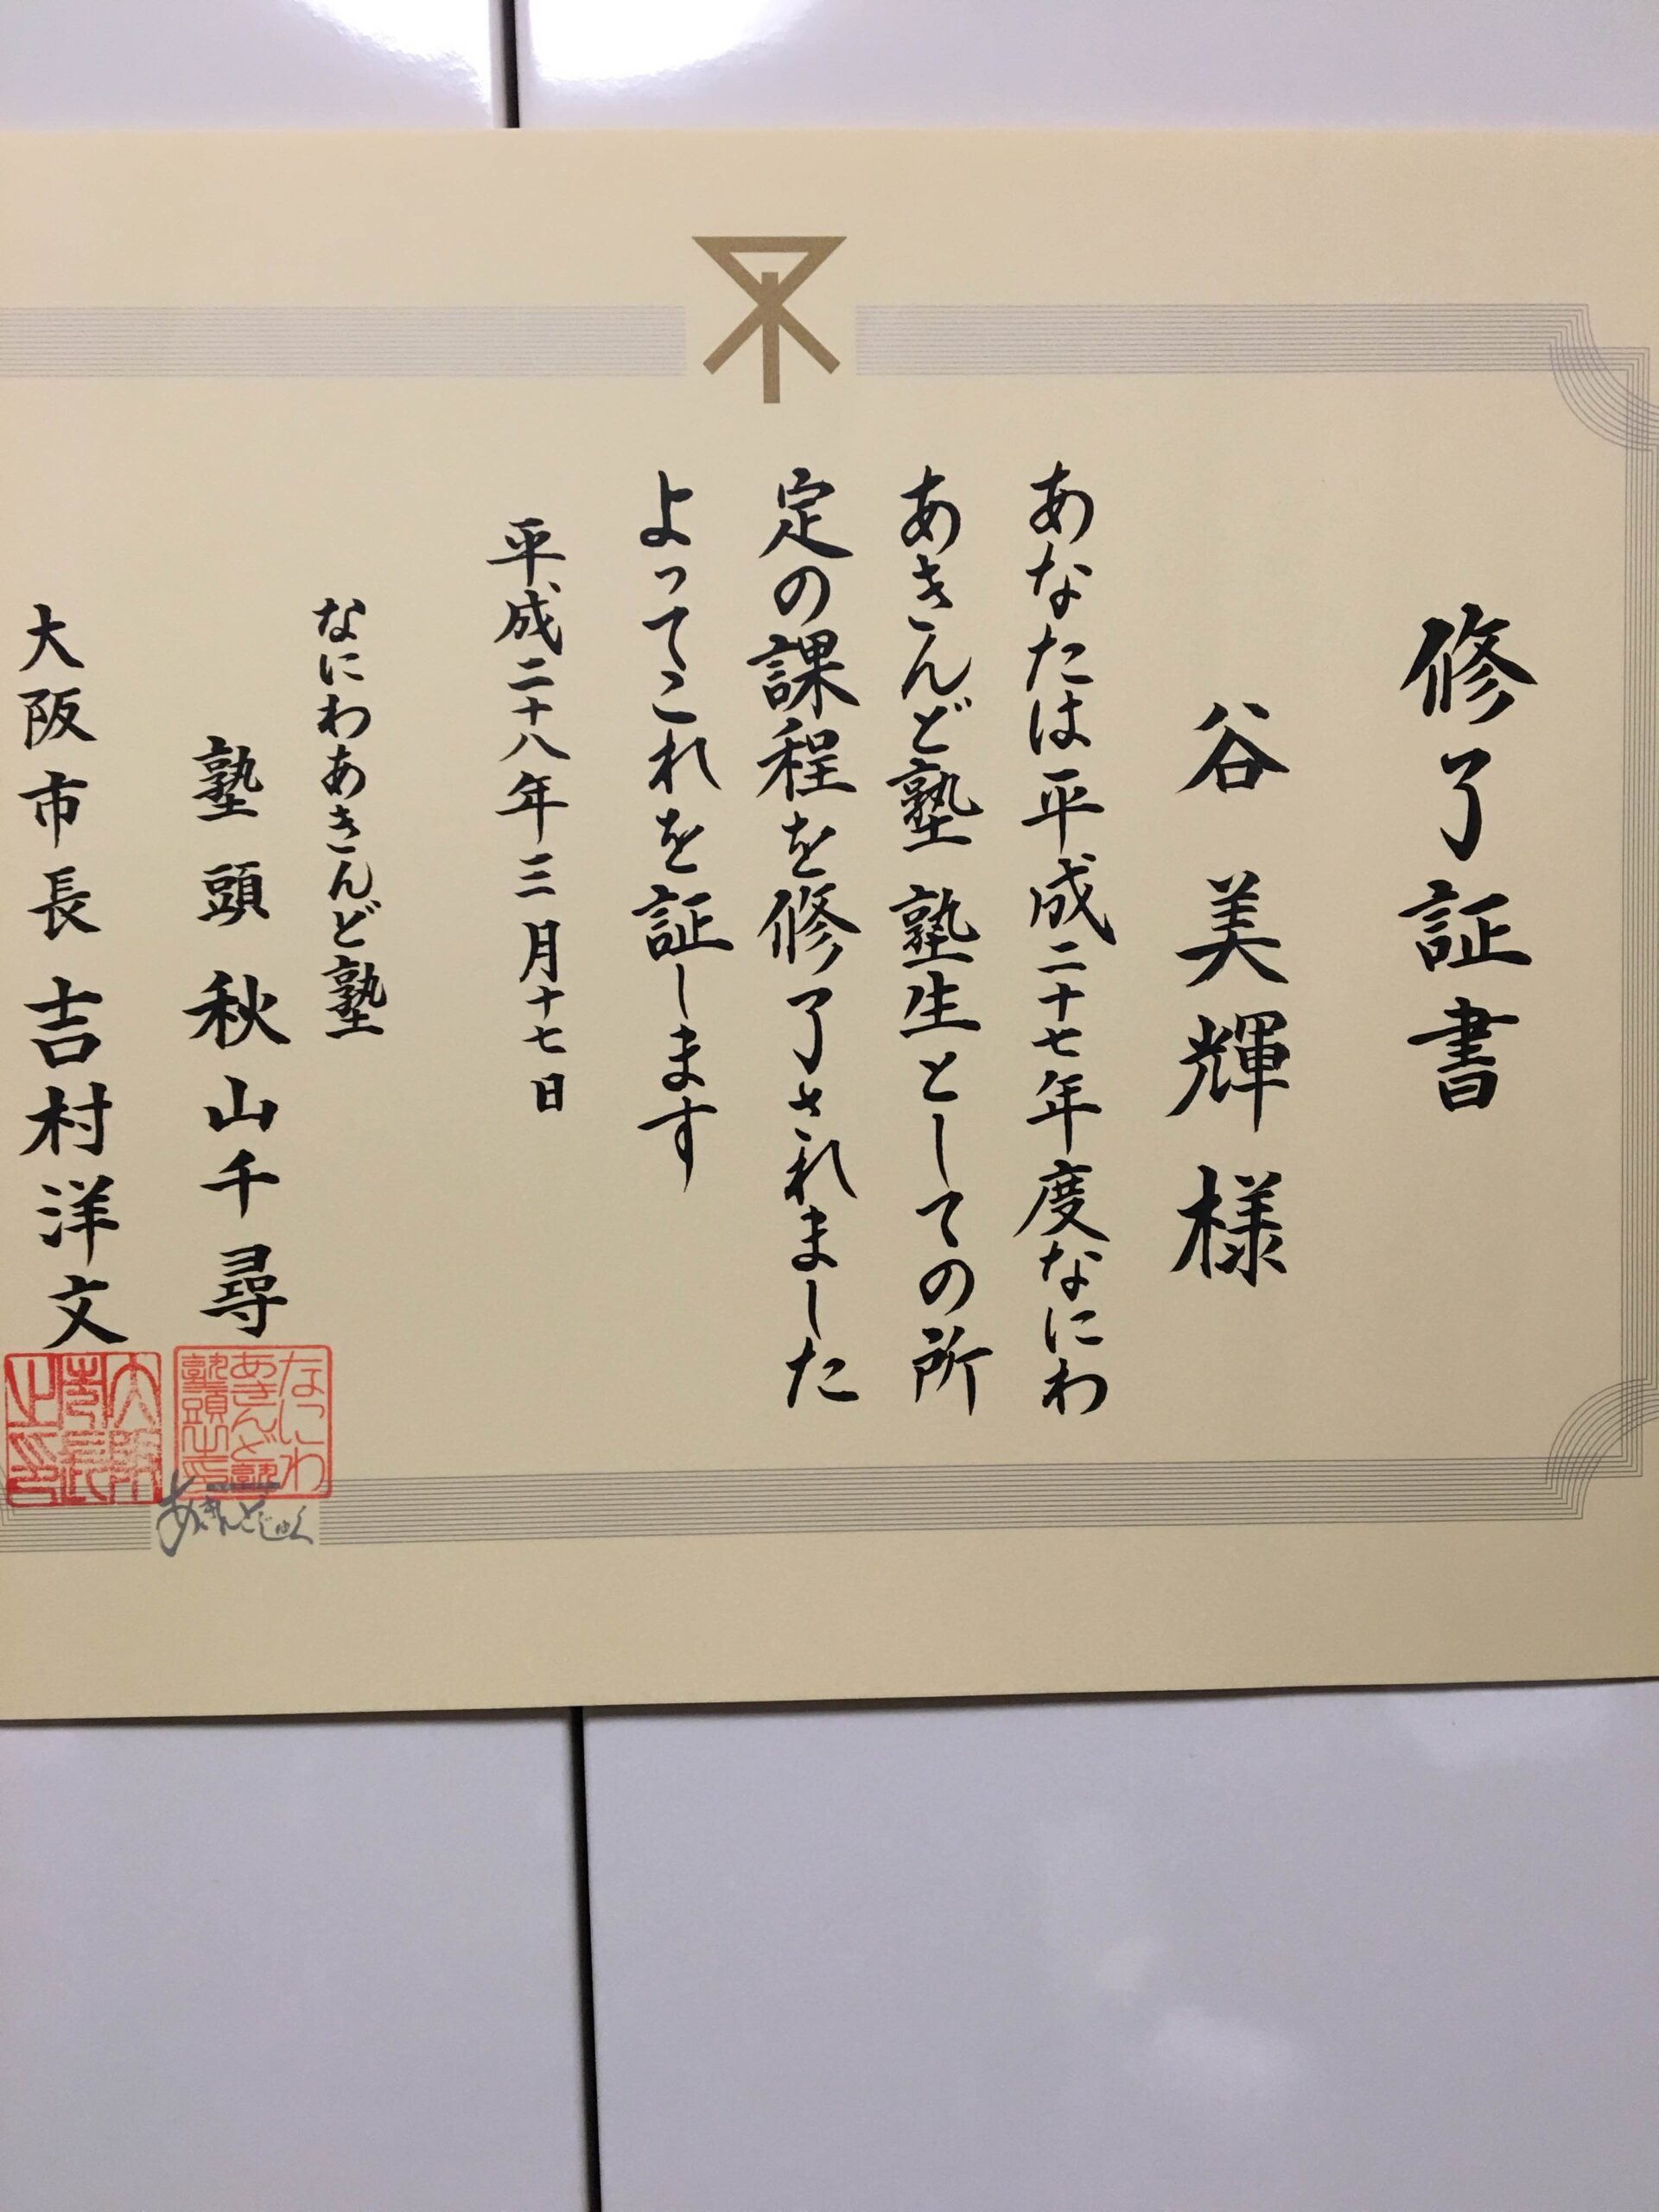 修了証書
谷 美輝 様
あなたは平成二十七年度なにわ
あきんど塾 塾生としての所
定の課程を修了されました
よってこれを証します
平成二十八年三月十七日
なにわあきんど塾
塾頭 秋山千尋
大阪市長 吉村洋文
なにわ
あきんど塾
塾頭之印
大阪
市長
之印
あきんどじゅく